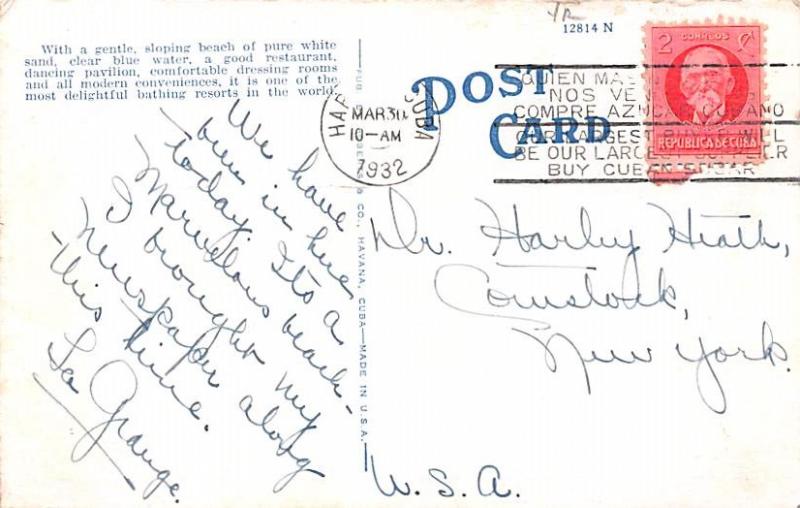 12814 N
With a gentle, sloping beach of pure white
sand, clear blue water, a good restaurant,
dancing pavilion, comfortable dressing rooms
and all modern conveniences, it is one of the
most delightful bathing resorts in the world.
POST
CARD
CUBA
MAR 30
10-AM
1932
QUIEN MAS
NOS VE
COMPRE AZUCAR CUBANO
OUR LARGEST BUYER WILL
BE OUR LARGEST
BUY CUBAN SUGAR
2 CORREOS
REPUBLICA DE CUBA
& CO., HAVANA, CUBA—MADE IN U.S.A.
We have
been in here
today. Its a
Marvelous beach-
I brought my
newspaper along
this time.
La Grange.
Dr. Harley Heath,
Comstock,
New York.
U.S.A.